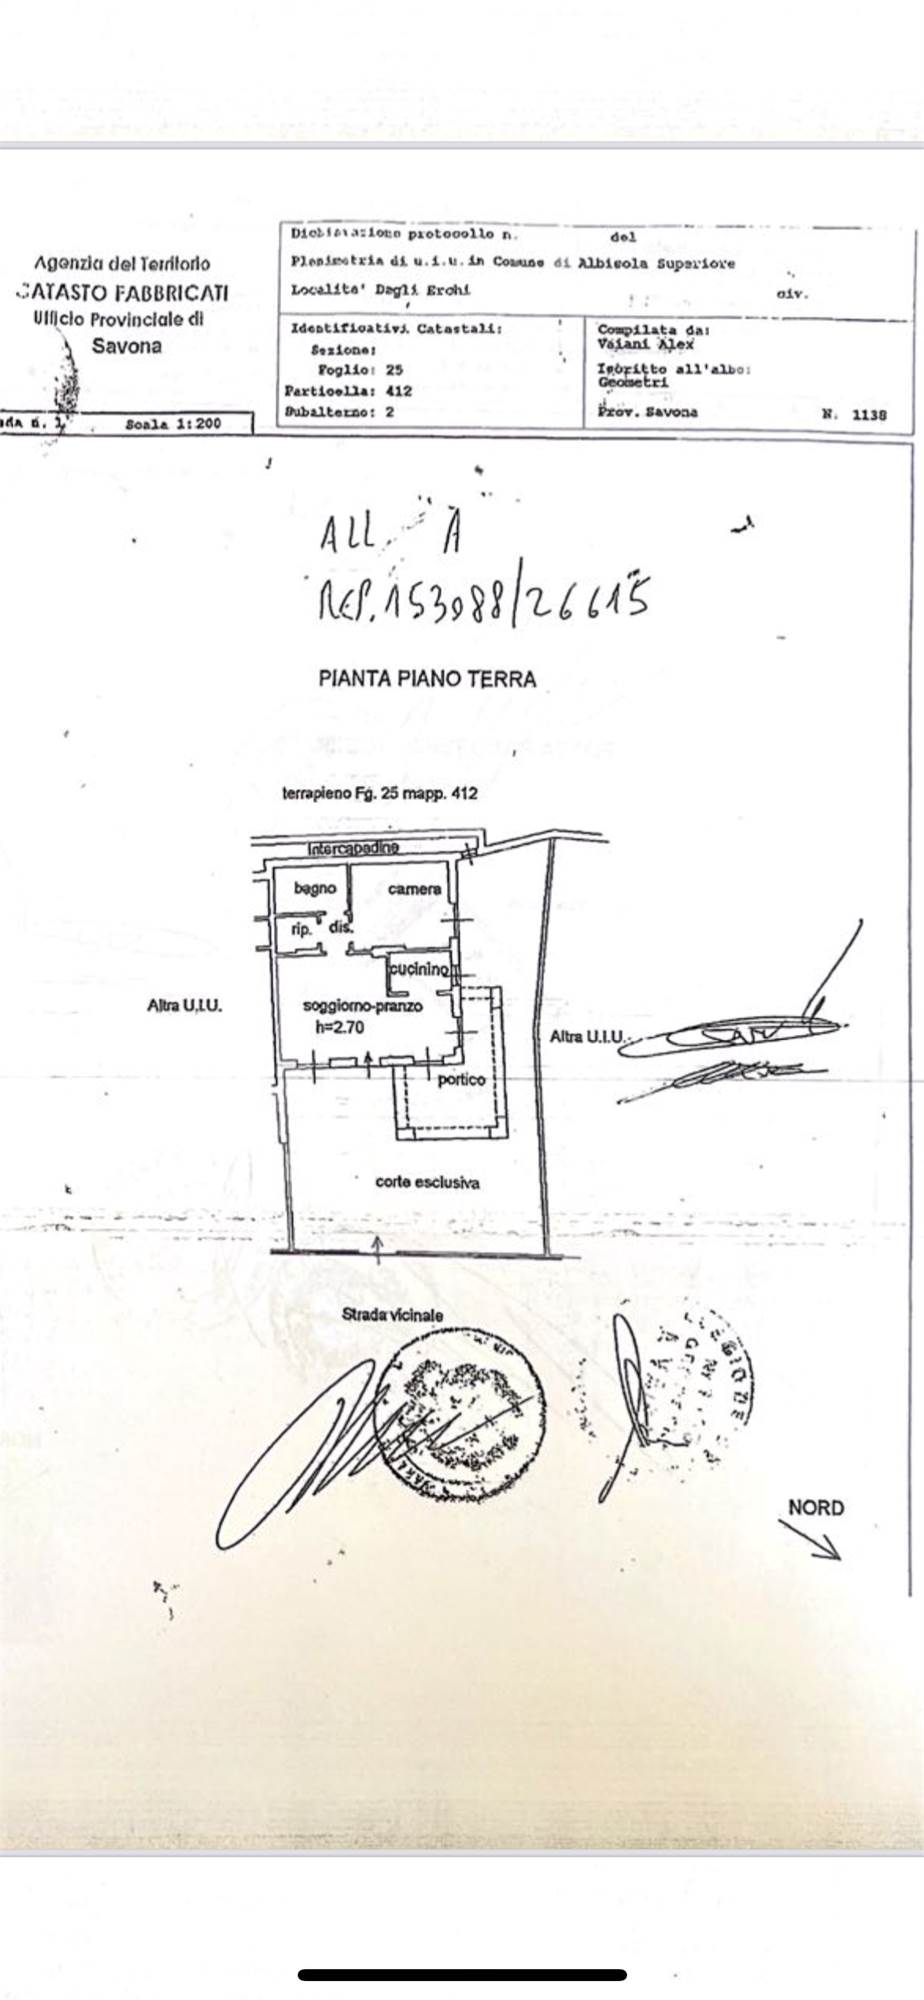 Dichiarazione protocollo n. del
Agenzia del Territorio
CATASTO FABBRICATI
Ufficio Provinciale di
Savona
Planimetria di u.i.u. in Comune di Albisola Superiore
Localita' Degli Erchi civ.
Identificativi Catastali:
Sezione:
Foglio: 25
Particella: 412
Subalterno: 2
Compilata da:
Vaiani Alex
Iscritto all'albo:
Geometri
Prov. Savona N. 1138
Scala 1:200
ALL "A"
REP. 153088/26615
PIANTA PIANO TERRA
terrapieno Fg. 25 mapp. 412
Intercapedine
bagno
camera
rip.
dis.
cucinino
soggiorno-pranzo
h=2.70
Altra U.I.U.
Altra U.I.U.
portico
corte esclusiva
Strada vicinale
NORD